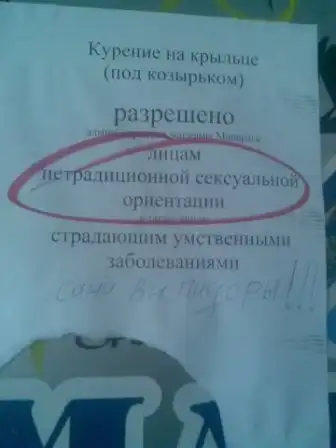 Курение на крыльце
(под козырьком)
разрешено
лицам
нетрадиционной сексуальной
ориентации
страдающим умственными
заболеваниями
сами вы пидоры!!!